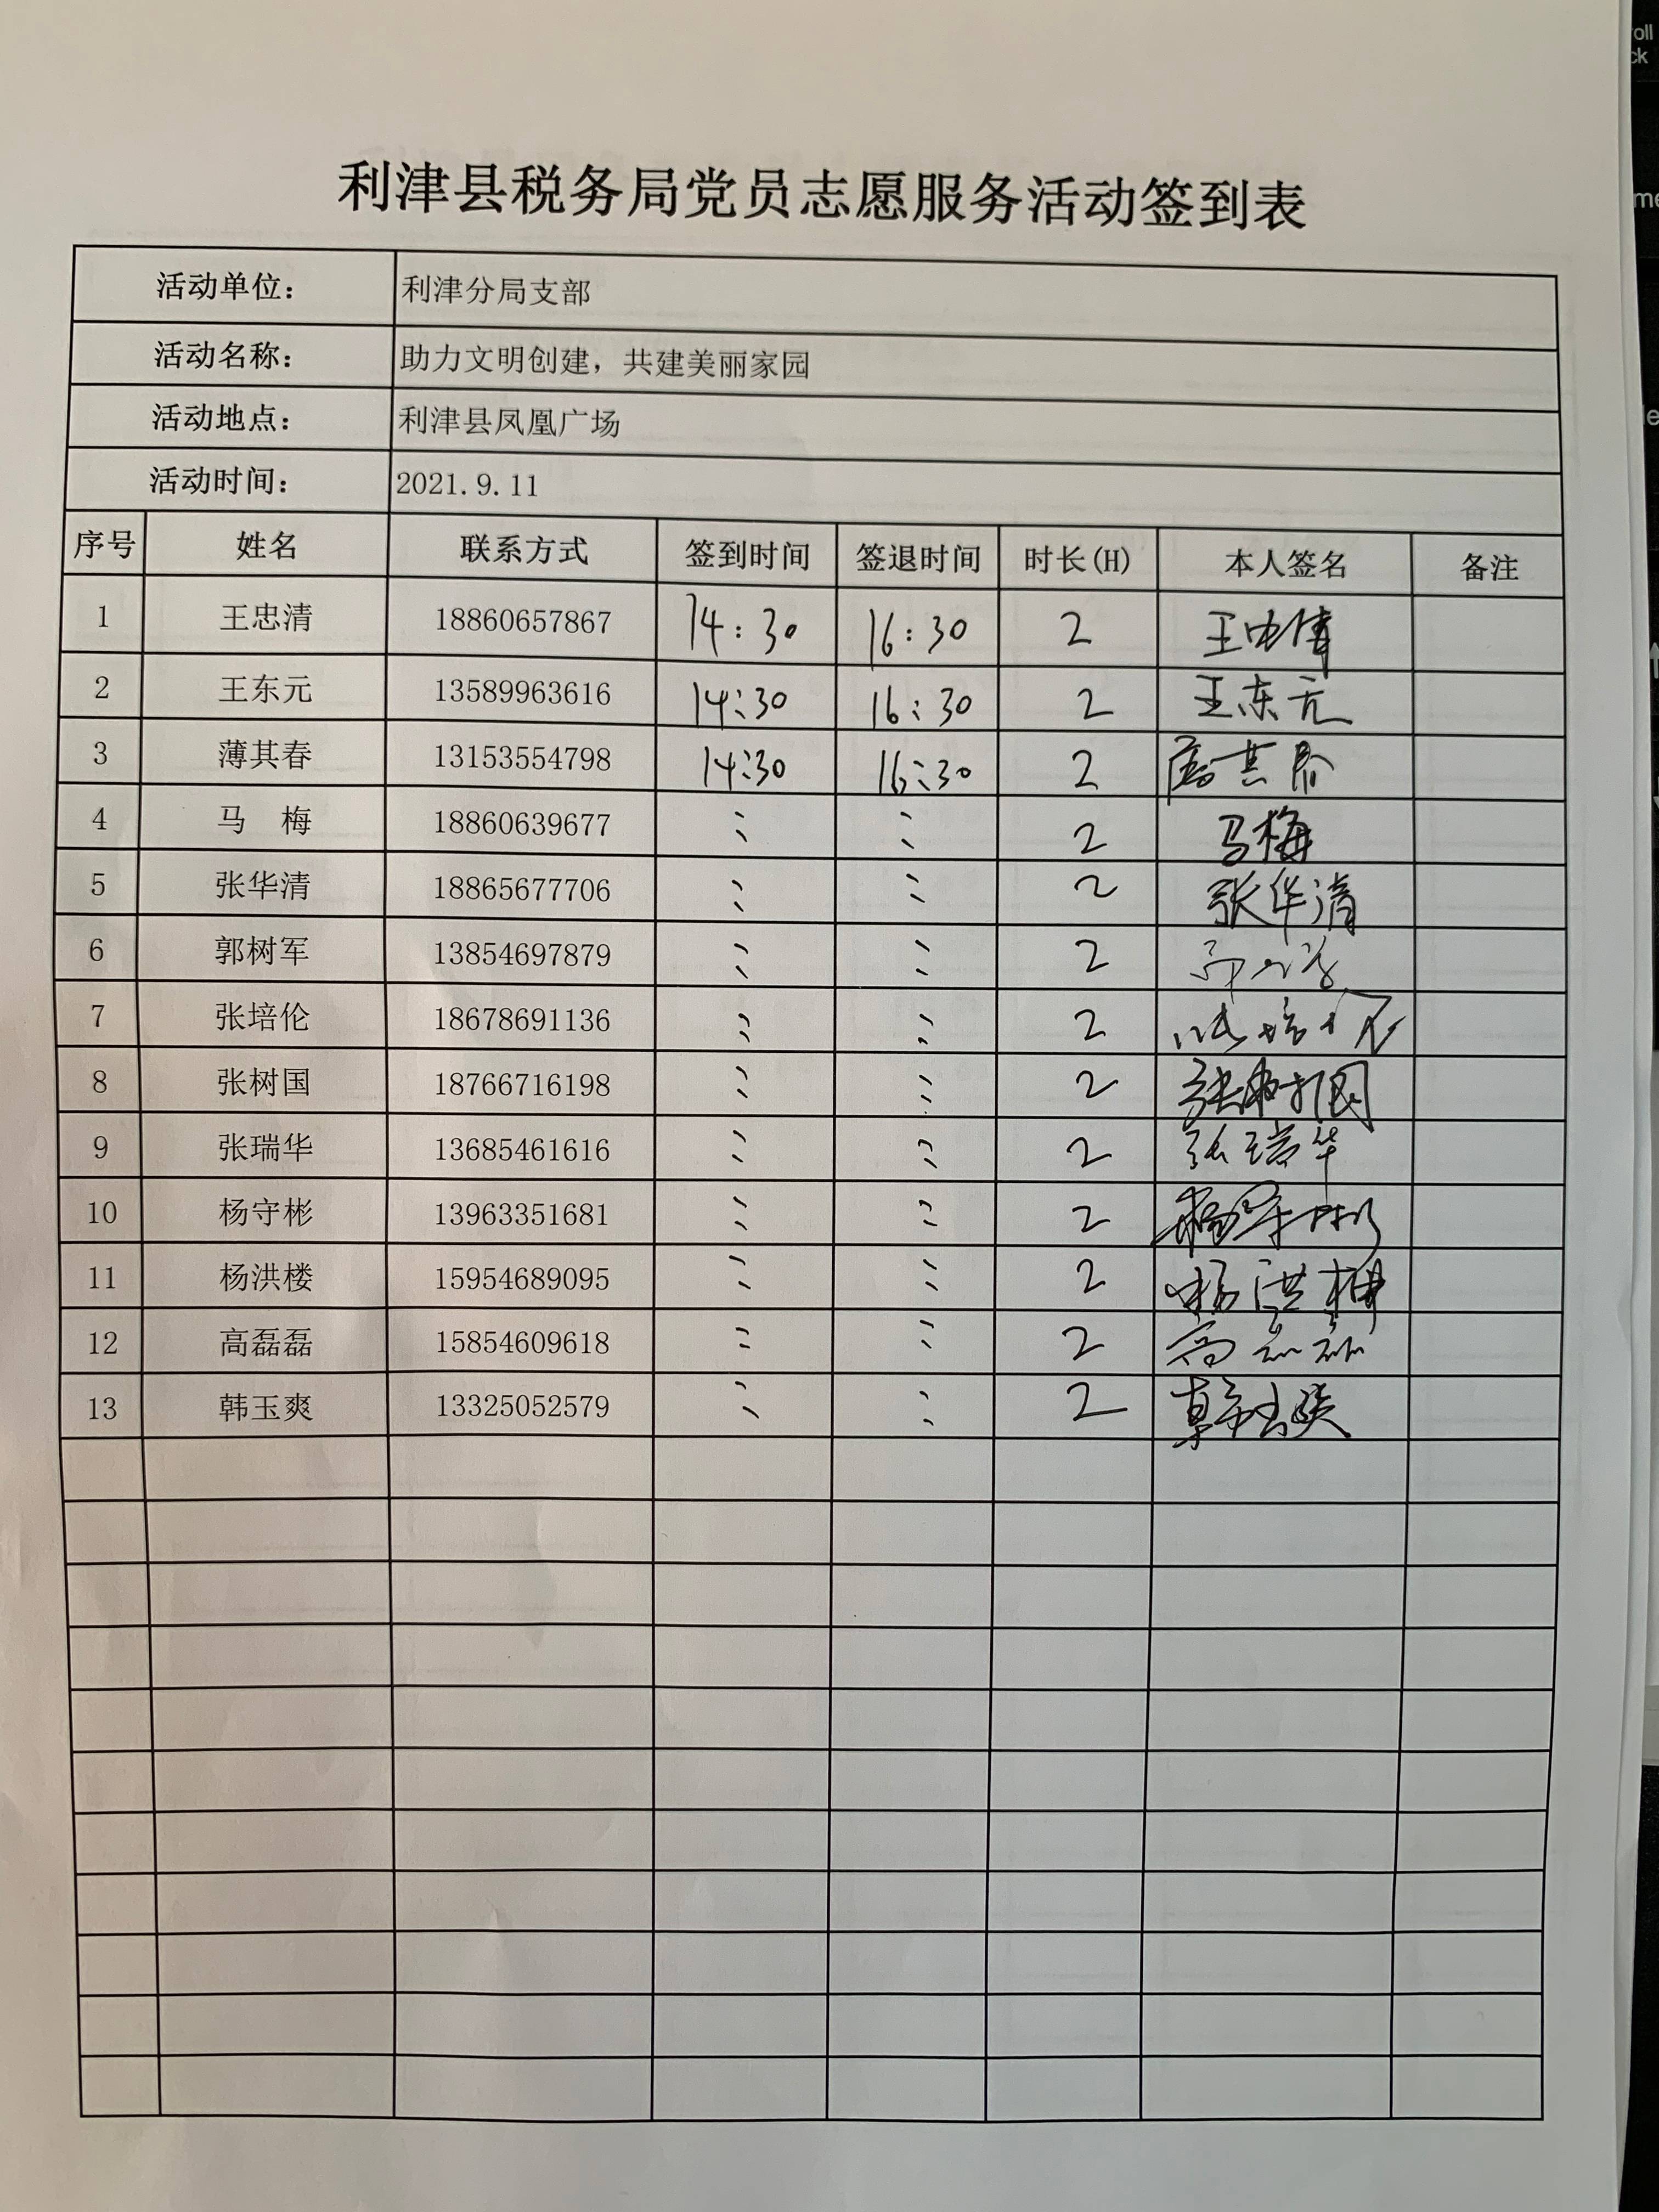 利津县税务局党员志愿服务活动签到表
活动单位： 利津分局支部
活动名称： 助力文明创建，共建美丽家园
活动地点： 利津县凤凰广场
活动时间： 2021.9.11
序号 姓名 联系方式 签到时间 签退时间 时长(H) 本人签名 备注
1 王忠清 18860657867 14:30 16:30 2 王忠清
2 王东元 13589963616 14:30 16:30 2 王东元
3 薄其春 13153554798 14:30 16:30 2 薄其春
4 马 梅 18860639677 〃 〃 2 马梅
5 张华清 18865677706 〃 〃 2 张华清
6 郭树军 13854697879 〃 〃 2
7 张培伦 18678691136 〃 〃 2 张培伦
8 张树国 18766716198 〃 〃 2 张树国
9 张瑞华 13685461616 〃 〃 2 张瑞华
10 杨守彬 13963351681 〃 〃 2 杨守彬
11 杨洪楼 15954689095 〃 〃 2
12 高磊磊 15854609618 〃 〃 2 高磊磊
13 韩玉爽 13325052579 〃 〃 2 韩玉爽